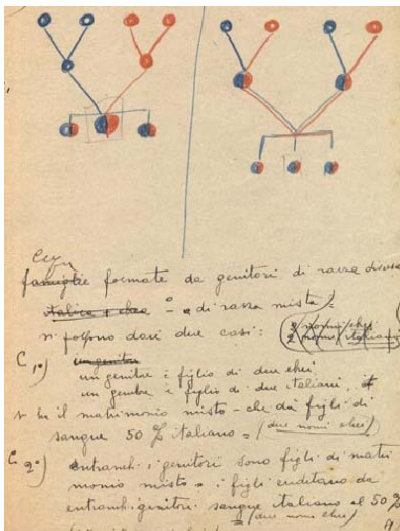 famiglie formate da genitori di razza diversa
italica e ebrea o di razza mista
si possono dari due casi: 2 nonni ebrei
2 nonni italiani
C. 1°) un genitore
un genitore è figlio di due ebrei
un genitore è figlio di due italiani,
si ha il matrimonio misto - che dà figli di
sangue 50 % italiano = (due nonni ebrei)
C. 2°) entrambi i genitori sono figli di matri
monio misto = i figli ereditano da
entrambi genitori sangue italiano al 50 %
= (due nonni ebrei)